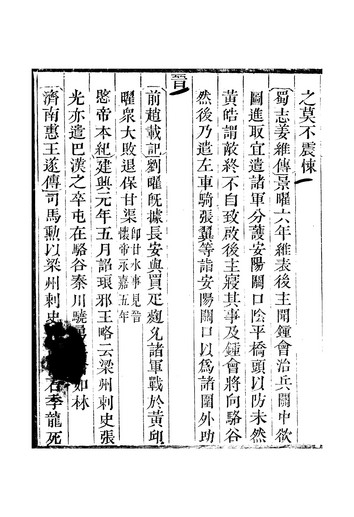 之莫不震悚
蜀志姜維傳景曜六年維表後主聞鍾會治兵關中欲
圖進取宜遣諸軍分護安陽關口陰平橋頭以防未然
黃皓謂敵終不自致啟後主寢其事及鍾會將向駱谷
然後乃遣左車騎張翼等詣安陽關口以為諸圍外助
晉
前趙載記劉曜旣據長安與賈疋麴允諸軍戰於黃邱
曜衆大敗退保甘渠卽甘水事見晉懷帝永嘉五年
愍帝本紀建興元年五月詔琅邪王略云梁州刺史張
光亦遣巴漢之卒屯在駱谷秦川驍如林
濟南惠王遂傳司馬勳以梁州刺史石季龍死